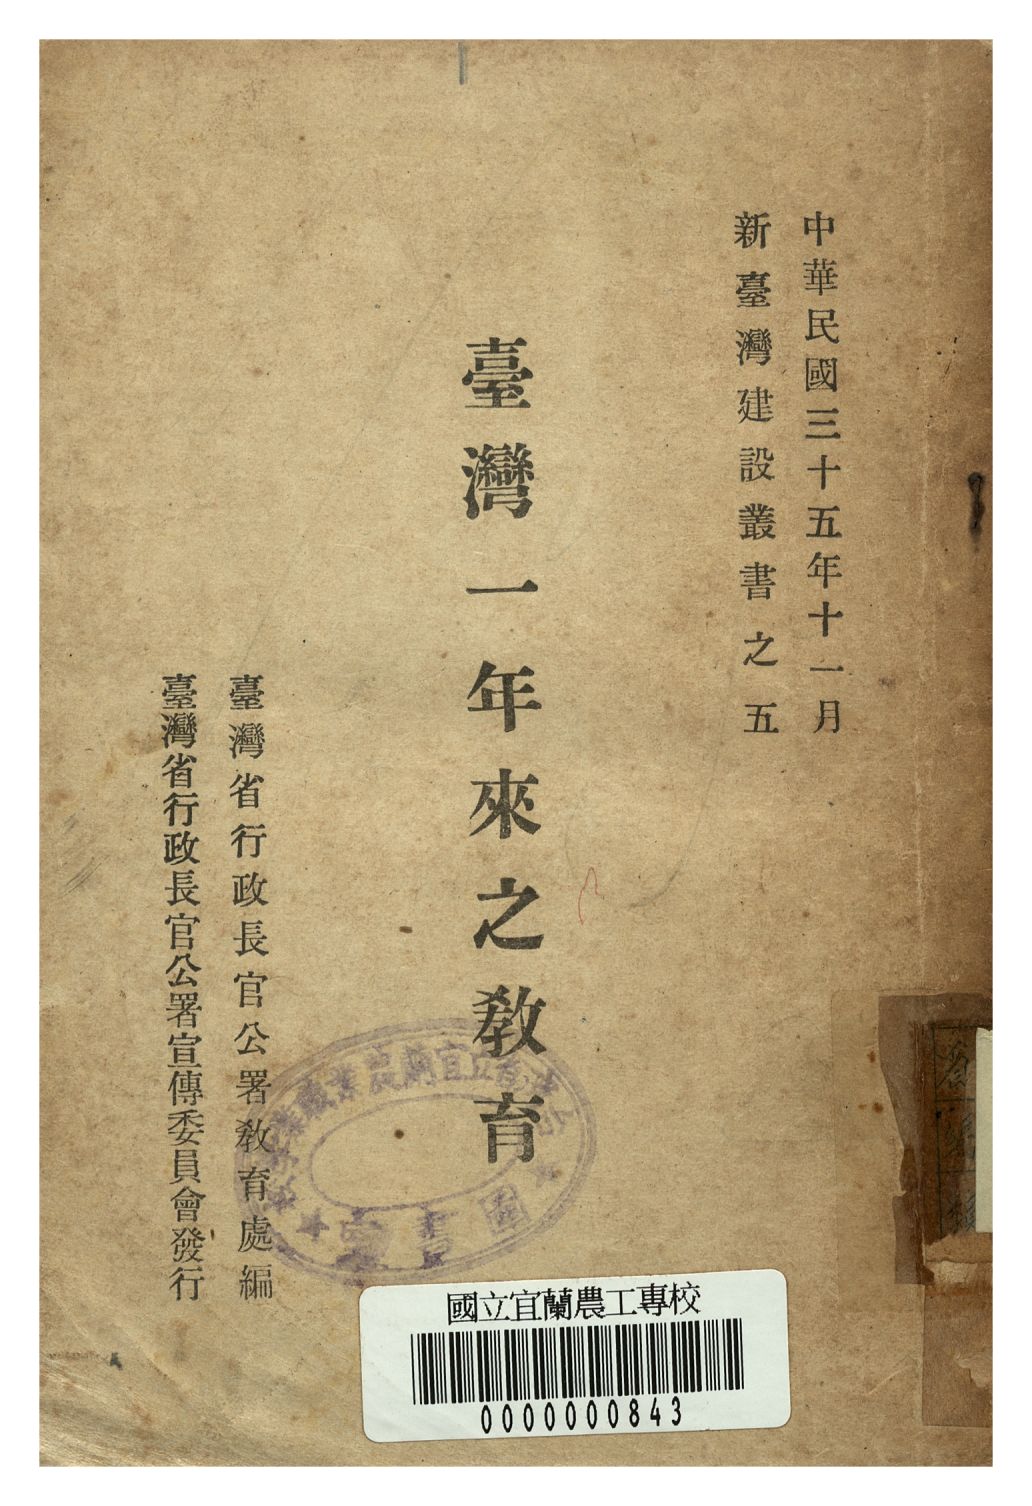 中華民國三十五年十一月
新臺灣建設叢書之五
臺灣一年來之教育
臺灣省行政長官公署教育處編
臺灣省行政長官公署宣傳委員會發行
國立宜蘭農工專校
0000000843